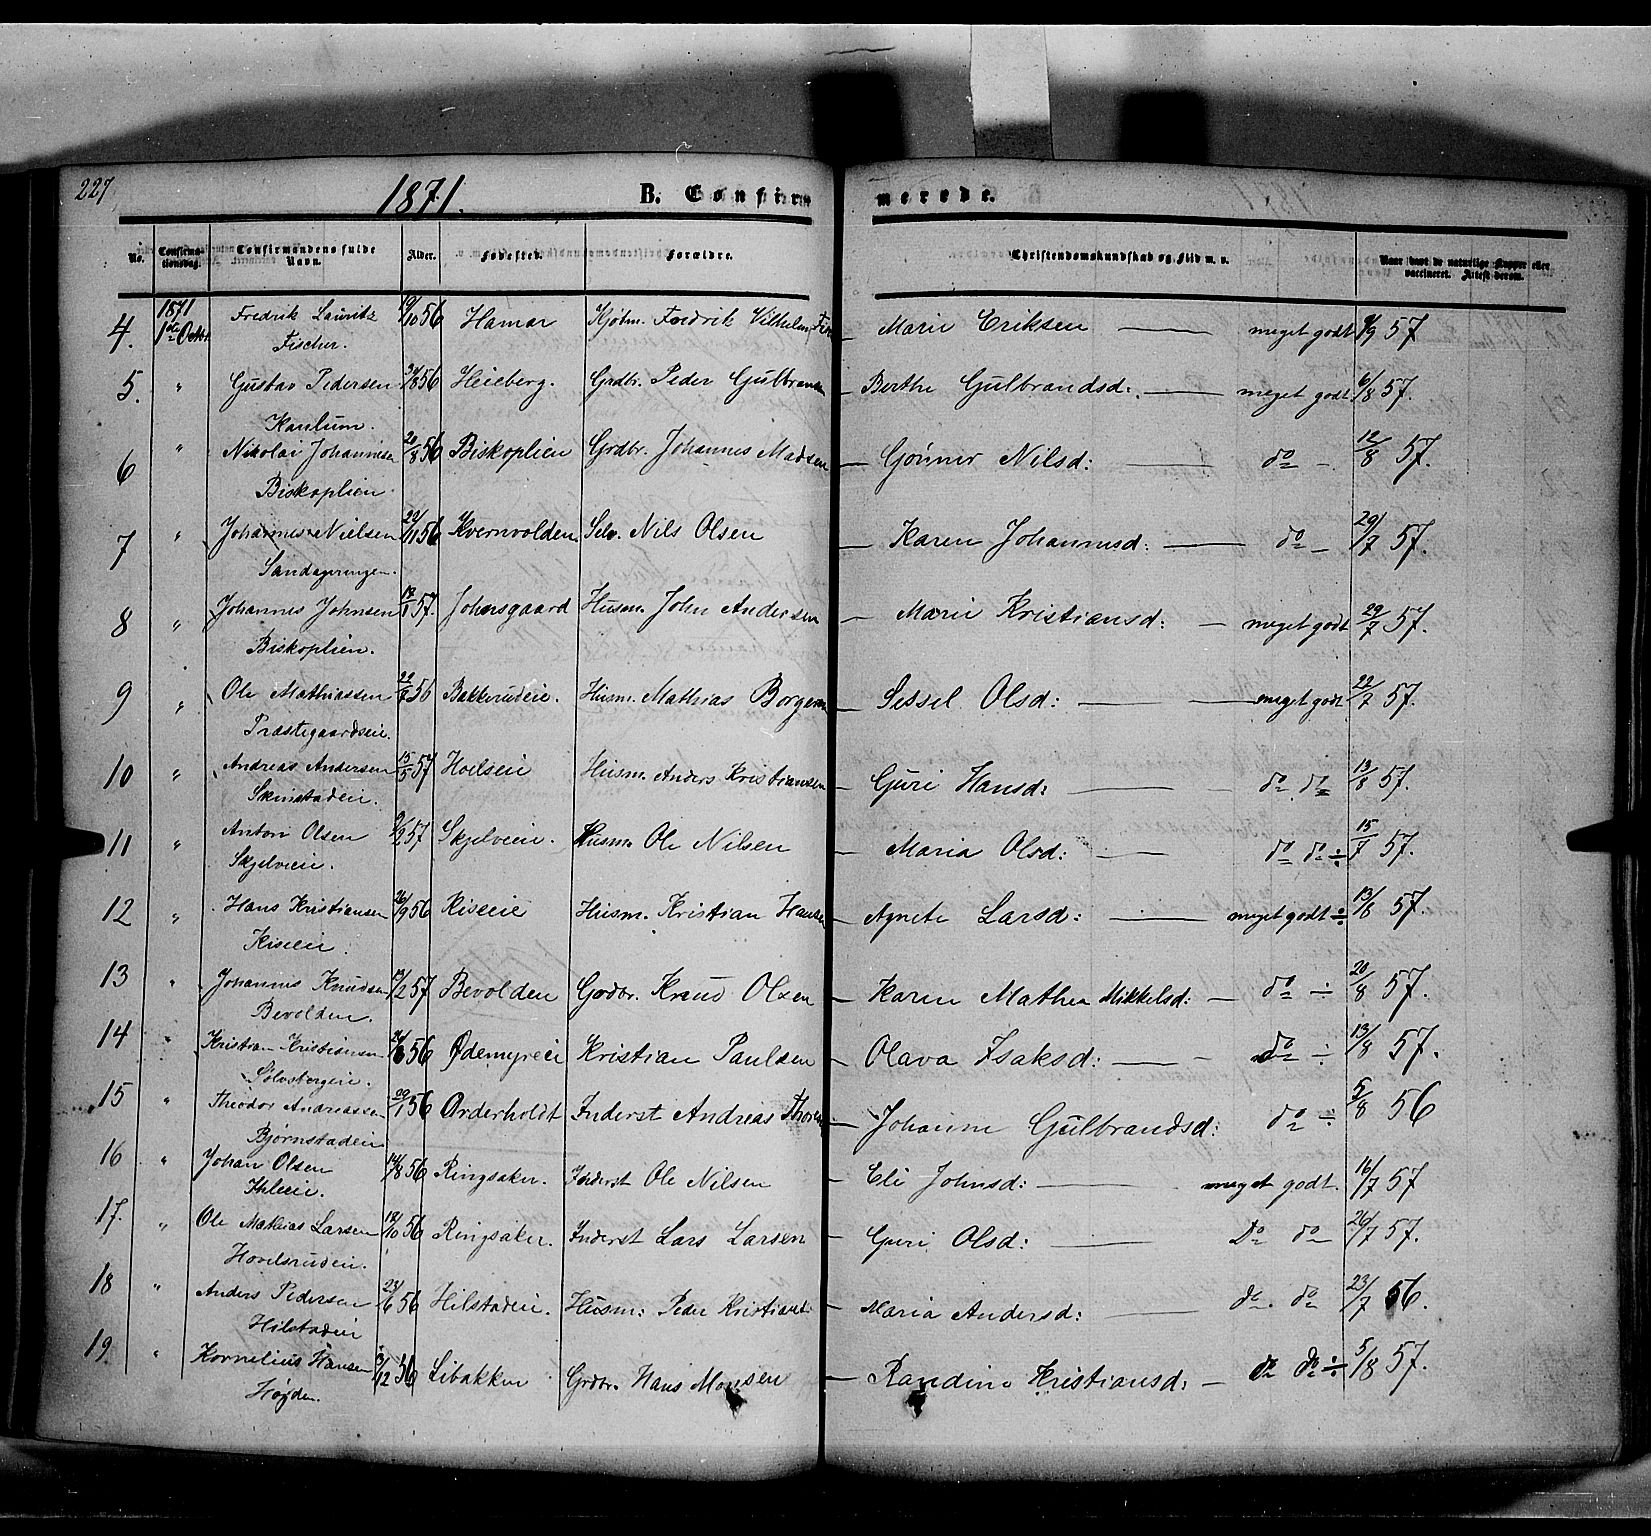 227
1871.
B. Confirmerede.
No. Confirmationsdag. Confirmandens fulde Navn. Alder. Fødested. Forældre. Christendomskundskab og Flid m. v. Naar havt de naturlige Kopper eller vaccineret. Attest derom.
1871
4. 1ste Octbr. Fredrik Lauritz 19/10 56 Hamar Kjøbm. Fredrik Vilhelm — Marie Eriksen — meget godt 9/9 57
Fischer.
5. " Gustav Pedersen 31/8 56 Heieberg. Grdbr. Peder Gulbrandsen — Berthe Gulbrandsd: — meget godt. 6/8 57.
Kaulum.
6 " Nikolai Johannesen 20/8 56 Biskoplien Grdbr. Johannes Madsen — Gønner Nilsd: — do — 12/8 57.
Biskoplien.
7 " Johannes Nielsen 22/11 56 Kvernvolden Selv. Nils Olsen — Karen Johannesd: — do — 29/7 57.
Sandageringen.
8 " Johannes Johnsen 1 57. Johnsgaard Husm. John Andersen — Marie Kristiansd: — meget godt 29/7 57.
Biskoplien.
9 " Ole Mathiassen 22 56 Bakkerudeie. Husm. Mathias Borgersen — Sessel Olsd: — meget godt 22/7 57.
Præstegaardseie.
10 " Andreas Andersen 15/5 57 Hoelseie Husm. Anders Kristiansen — Guri Hansd: — do do 13/8 57.
Skinstadeie.
11 " Anton Olsen 9/2 57 Skjelveie. Husm. Ole Nilsen — Maria Olsd: — do do ÷ 15/7 57.
Skjelveie.
12 " Hans Kristiansen 26/9 56 Kiseeie Husm. Kristian Hansen — Agnete Larsd: — meget godt ÷ 13/8 57.
Kiseeie.
13 " Johannes Knudsen 12/2 57 Bevolden Grdbr. Knud Olsen — Karen Mathea Mikkelsd: — do ÷ 20/8 57.
Bevolden.
14 " Kristian Kristiansen 56 Ødemyreie Kristian Paulsen — Olava Isaksd: — do ÷ 13/8 57.
Sølvsbergeie.
15 " Theodor Andreassen 29/1 56 Orderholdt Inderst Andreas — Johanne Gulbrandsd: do ÷ 5/8 56
Bjørnstadeie
16 " Johan Olsen 14/8 56 Ringsaker. Inderst Ole Nilsen — Eli Johnsd: — meget godt. 16/7 57
Ihleeie.
17. " Ole Mathias Larsen 18/10 56 Ringsaker. Inderst Lars Larsen — Guri Olsd: — Do do 26/7 57.
Hovelsrudeie.
18 " Anders Pedersen 23/6 56 Hilstadeie. Husm: Peder Kristians — Maria Andersd: — do. do 23/7 56.
Hilstadeie
19. " Kornelius Hansen 3/12 56 Libakken Grdbr. Hans Monsen — Randine Kristiansd: — do do ÷ 5/8 57.
Høyden.